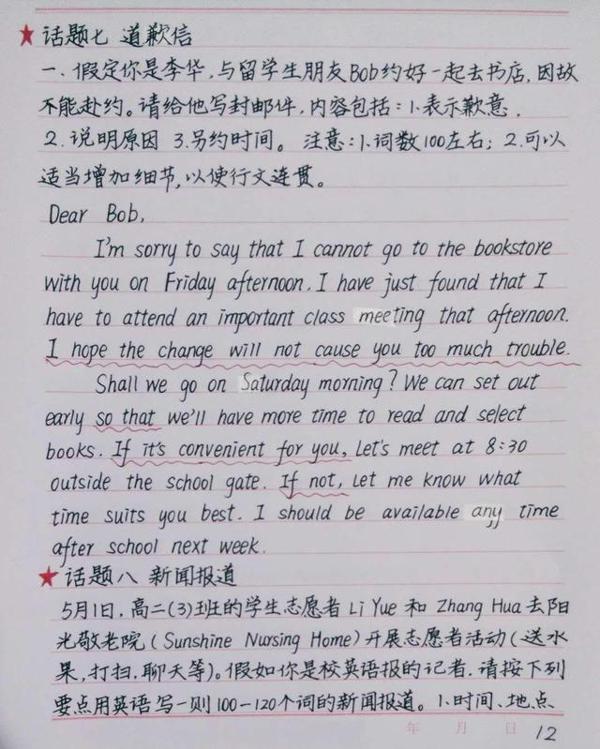 ★ 话题七 道歉信
一. 假定你是李华,与留学生朋友Bob约好一起去书店,因故
不能赴约。请给他写封邮件,内容包括:1.表示歉意.
2.说明原因 3.另约时间。 注意:1.词数100左右; 2.可以
适当增加细节,以使行文连贯。
Dear Bob,
I'm sorry to say that I cannot go to the bookstore
with you on Friday afternoon. I have just found that I
have to attend an important class meeting that afternoon.
I hope the change will not cause you too much trouble.
Shall we go on Saturday morning? We can set out
early so that we'll have more time to read and select
books. If it's convenient for you, Let's meet at 8:30
outside the school gate. If not, Let me know what
time suits you best. I should be available any time
after school next week.
★ 话题八 新闻报道
5月1日,高二(3)班的学生志愿者Li Yue 和 Zhang Hua去阳
光敬老院(Sunshine Nursing Home)开展志愿者活动(送水
果,打扫,聊天等)。假如你是校英语报的记者.请按下列
要点用英语写一则100-120个词的新闻报道。1.时间、地点
年 月 日 12